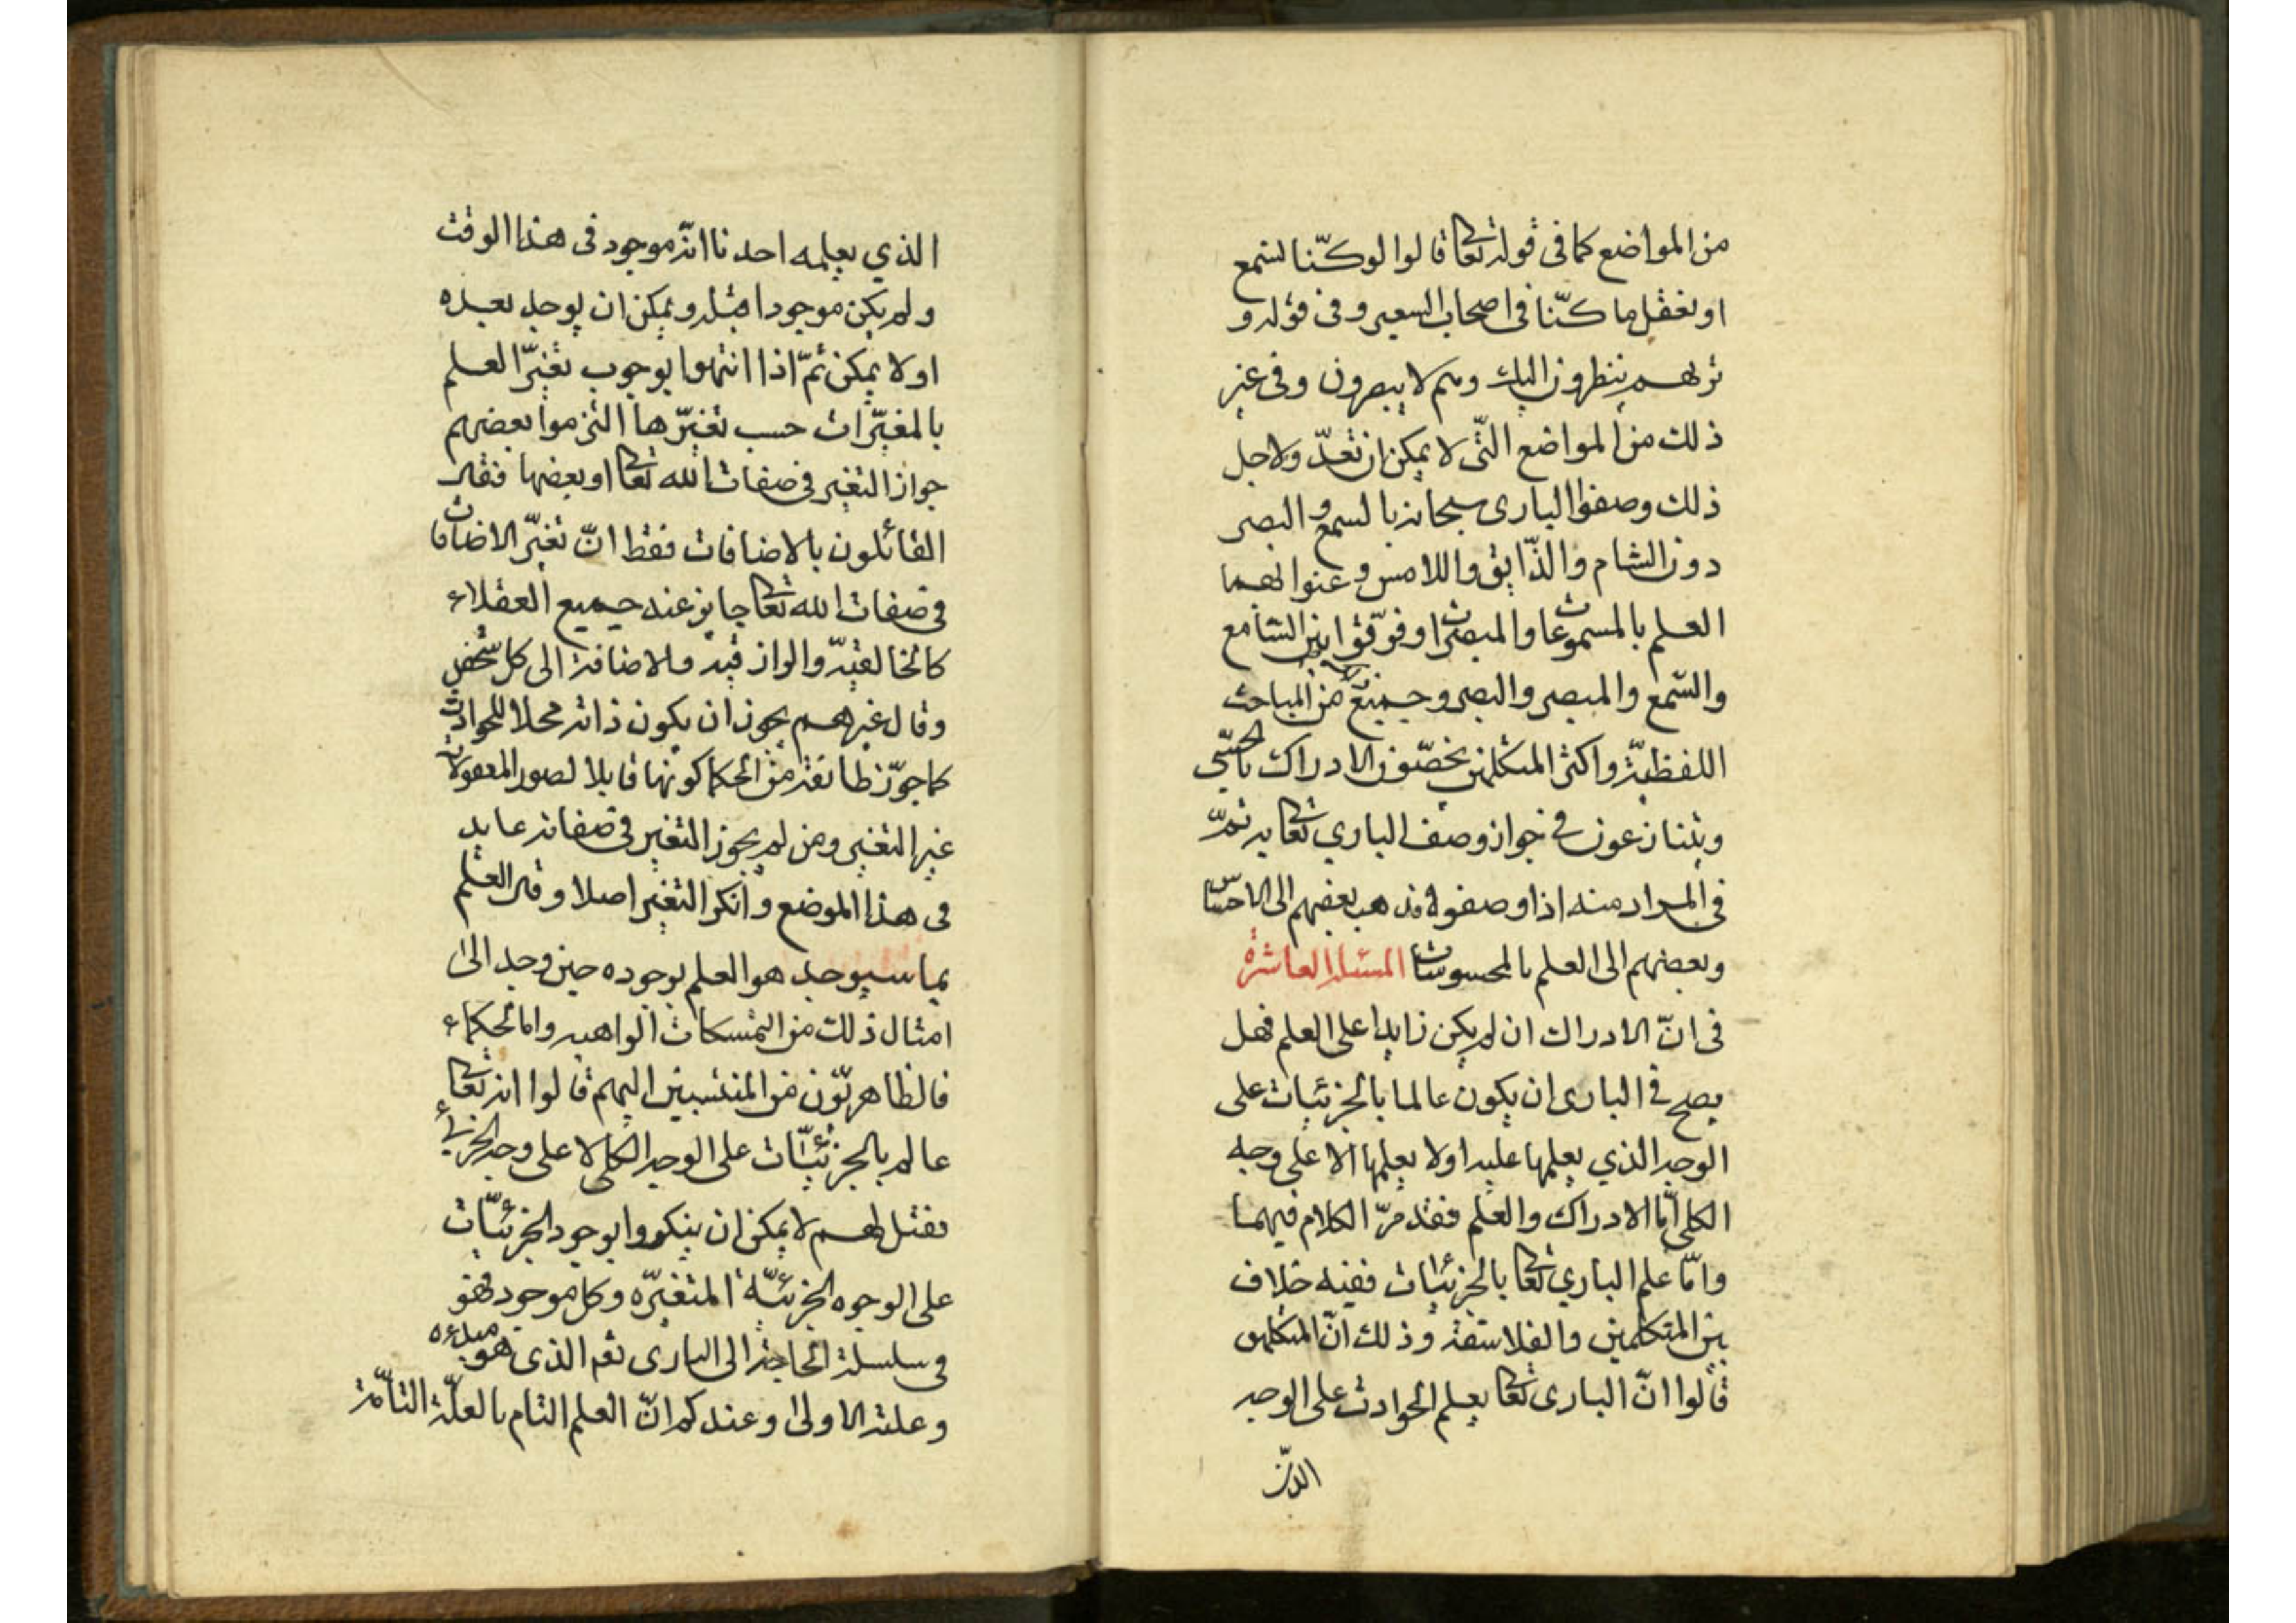 من المواضع كما في قوله تعا قالوا لو كنّا نسمع
او نعقل ما كنّا في اصحاب السعير وفي قوله و
تريهم ينظرون اليك وهم لا يبصرون وفي غير
ذلك من المواضع الّتي لا يمكن ان تعدّ ولاجل
ذلك وصفوا الباري سبحانه بالسمع و البصر
دون الشام والذّايق واللامس وعنوا بهما
العلم بالمسموعات والمبصرات وفرّقوا بين السامع
والسّمع والمبصر والبصر وجميع من المباحث
اللفظيّة واكثر المتكلمين يخصّون الادراك بالحسّي
ويتنازعون في جواز وصف الباري تعا به ثمّ
في المراد منه اذا وصفوه فذهب بعضهم الى الاحساس
وبعضهم الى العلم بالمحسوسات المسئلة العاشرة
في انّ الادراك ان لم يكن زايدا على العلم فهل
يصح في الباري ان يكون عالما بالجزئيات على
الوجه الذي يعلمها عليه او لا يعلمها الا على وجه
الكلي امّا الادراك والعلم فقد مرّ الكلام فيهما
وامّا علم الباري تعا بالجزئيات ففيه خلاف
بين المتكلمين والفلاسفة وذلك انّ المتكلمين
قالوا انّ الباري تعا يعلم الحوادث على الوجه
الذي
الذي يعلمه احدنا انّه موجود في هذا الوقت
ولم يكن موجودا قبله ويمكن ان يوجد بعده
او لا يمكن ثمّ اذا انتهوا بوجوب تغيّر العلم
بالمغيّرات حسب تغيّرها التزموا بعضهم
جواز التغير في صفات الله تعا او بعضها فقال
القائلون بالاضافات فقط انّ تغيّر الاضافات
في صفات الله تعا جايز عند جميع العقلاء
كالخالقيّة والوازقية والاضافة الى كل شخص
وقال غيرهم يجوز ان يكون ذاته محلا للحوادث
كما جوّز طائفة من الحكما كونها قابلا لصور المعقولات
غير التغير ومن لم يجوز التغير في صفاته عابد
في هذا الموضع وانكر التغير اصلا وقال العلم
بما سيوجد هو العلم بوجوده حين وجد الى
امثال ذلك من التمسكات الواهيه واما الحكماء
فالظاهريّون من المنتسبين اليهم قالوا انه تعا
عالم بالجزئيّات على الوجه الكلي لا على وجه الجزئي
فقيل لهم لا يمكن ان ينكروا بوجود الجزئيّات
على الوجوه الجزئيّة المتغيّره وكل موجود فهو
في سلسلة الحاجة الى الباري تع الذي هو مبدءه
وعلته الاولى وعندكم انّ العلم التام بالعلّة التامّة